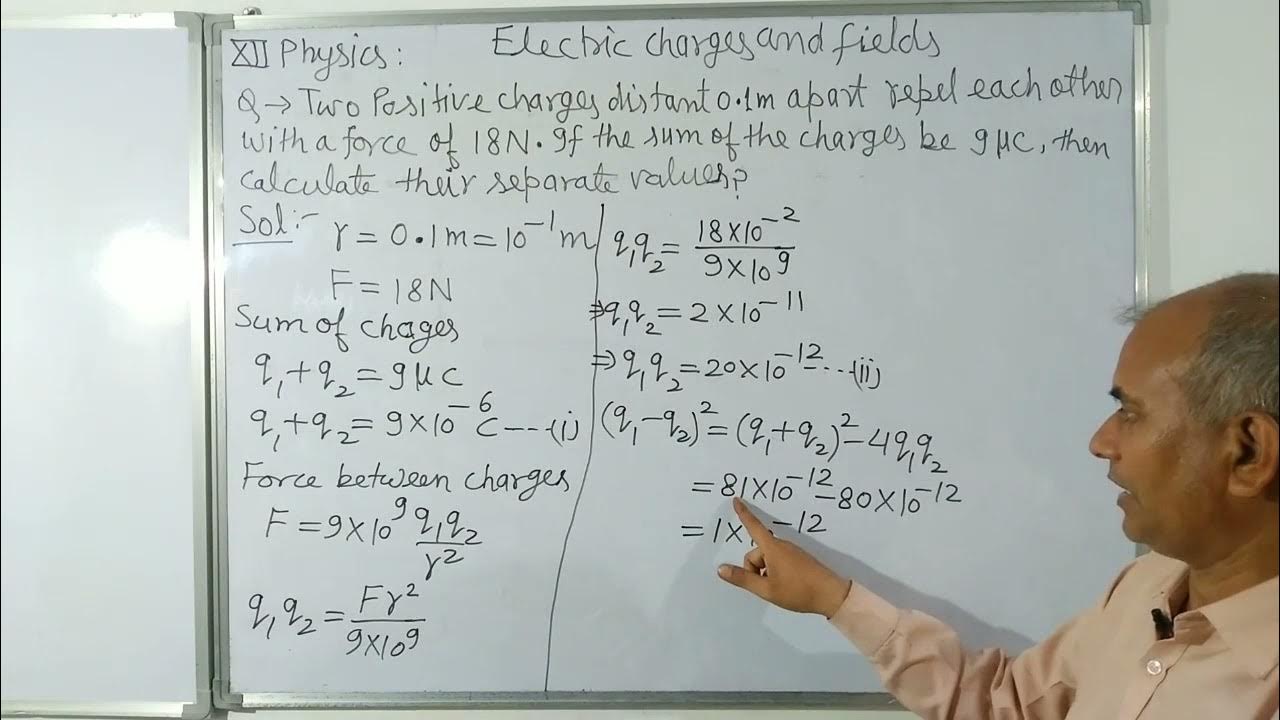 XII Physics: Electric charges and fields
Q → Two Positive charges distant 0.1m apart repel each other
with a force of 18N. If the sum of the charges be 9μc, then
calculate their separate values?
Sol:-
r = 0.1m = 10⁻¹m
F = 18N
Sum of chages
q₁ + q₂ = 9μc
q₁ + q₂ = 9×10⁻⁶ C ---(i)
Force between charges
F = 9×10⁹ q₁q₂/r²
q₁q₂ = Fr²/9×10⁹
q₁q₂ = 18×10⁻²/9×10⁹
⇒ q₁q₂ = 2×10⁻¹¹
⇒ q₁q₂ = 20×10⁻¹² ---(ii)
(q₁-q₂)² = (q₁+q₂)² - 4q₁q₂
= 81×10⁻¹² - 80×10⁻¹²
= 1×10⁻¹²